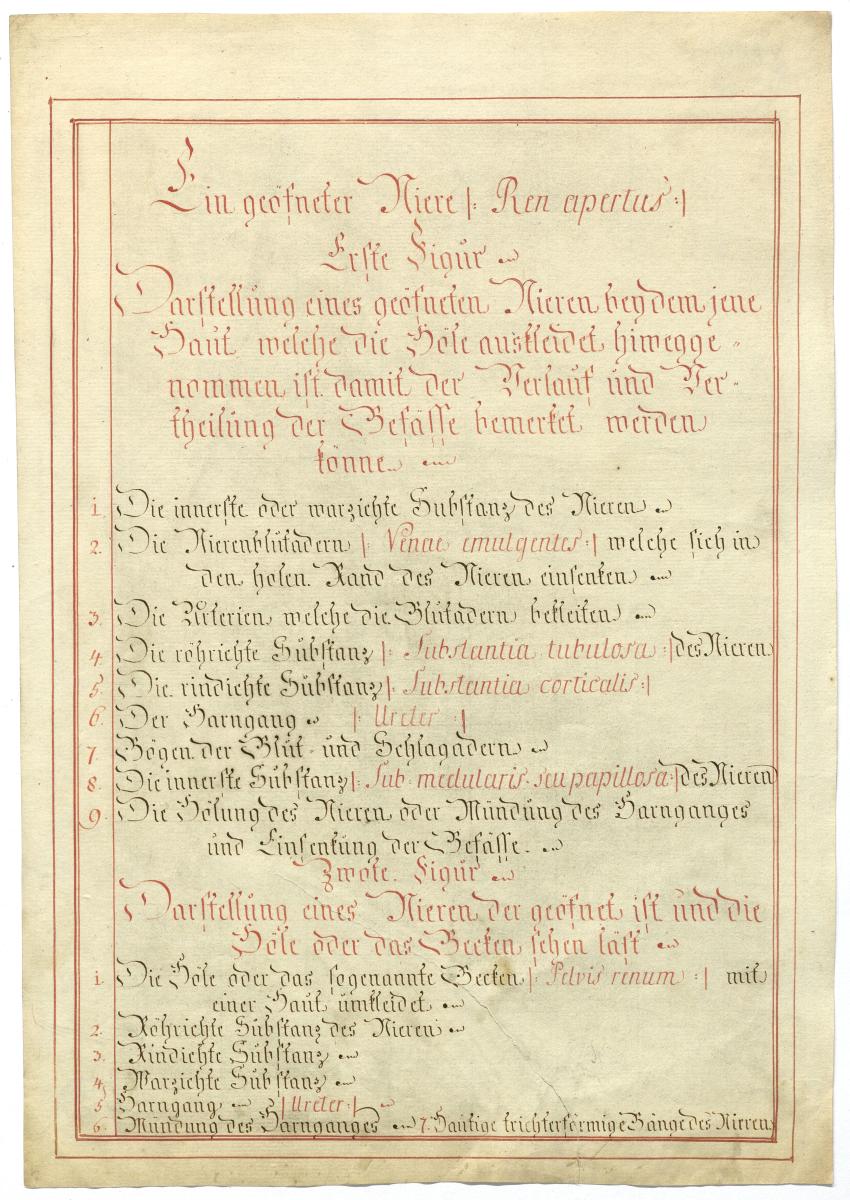 Ein geöfneter Niere |: Ren apertus :|
Erste Figur
Darstellung eines geöfneten Nieren bey dem jene
Haut welche die Höle auskleidet hiwegge-
nommen ist damit der Verlauf und Ver-
theilung der Gefässe bemerket werden
könne.
1. Die innerste oder warzichte Substanz des Nieren
2. Die Nierenblutadern |: Venae emulgentes :| welche sich in
den holen Rand des Nieren einsenken
3. Die Arterien welche die Blutadern bekleiten
4. Die röhrichte Substanz |: Substantia tubulosa :| des Nieren
5. Die rindichte Substanz |: Substantia corticalis :|
6. Der Harngang |: Ureter :|
7. Bögen der Blut- und Schlagadern
8. Die innerste Substanz |: Sub medularis seu papillosa :| des Nieren
9. Die Hölung des Nieren oder Mündung des Harnganges
und Einsenkung der Gefässe.
Zwote Figur
Darstellung eines Nieren der geöfnet ist und die
Höle oder das Becken sehen läst
1. Die Höle oder das sogenannte Becken |: Pelvis renum :| mit
einer Haut umkleidet
2. Röhrichte Substanz des Nieren
3. Rindichte Substanz
4. Warzichte Substanz
5. Harngang |: Ureter :|
6. Mündung des Harnganges 7. Häutige trichterförmige Gänge des Nieren